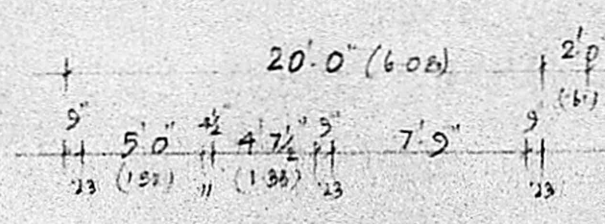 20'-0" (6.08) 2'-0"
(.61)
9" 5'-0" 4½" 4'-7½" 9" 7'-9" 9
.23 (1.52) .11 (1.38) .23 .23